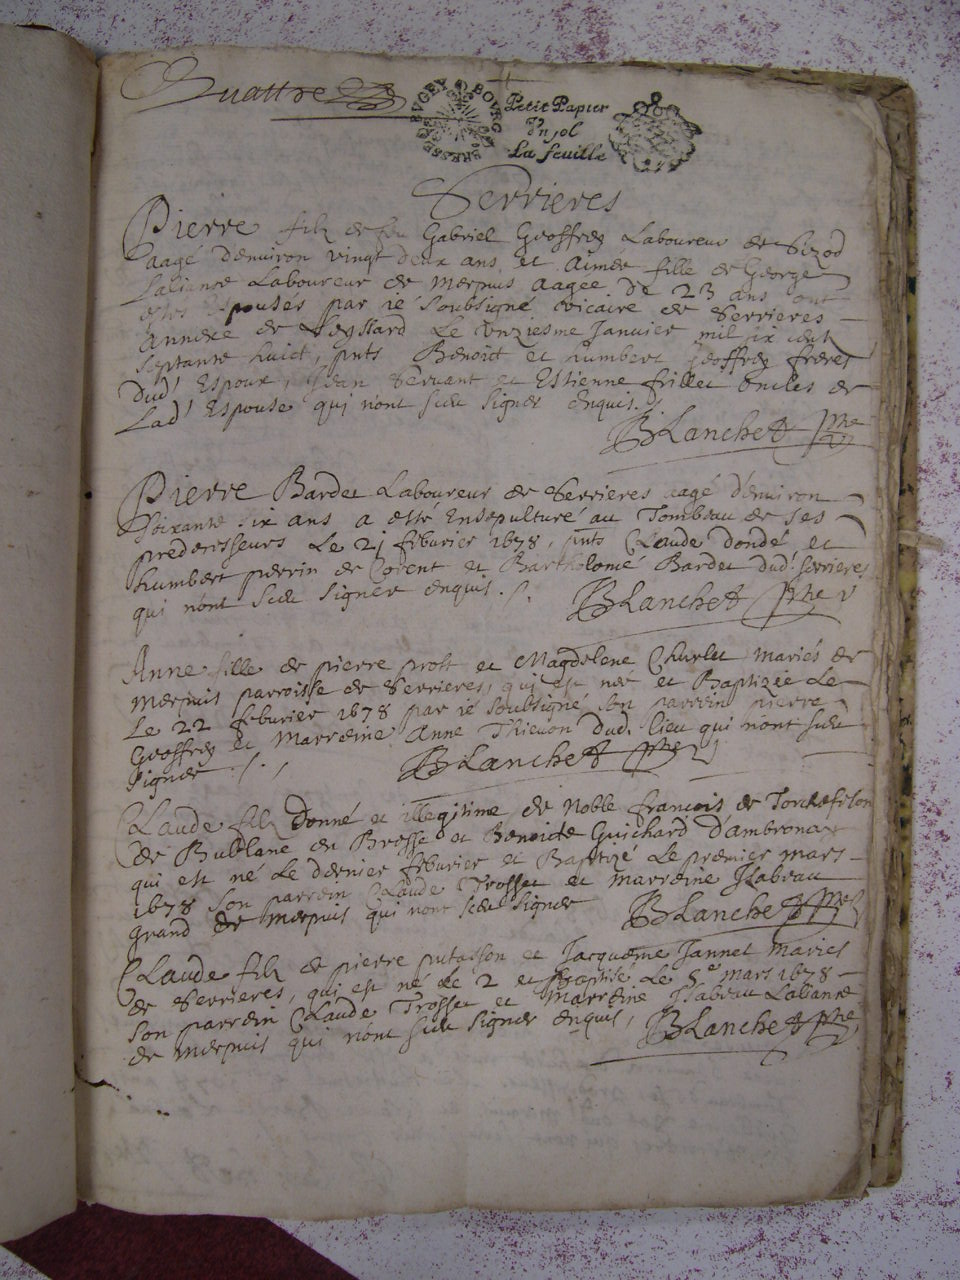 Quattre
BRESSE BVGEY BOVRG
Petit Papier
Un sol
La feuille
Serrieres
Pierre filz de feu Gabriel Geoffrey Laboureur de Sizod
aagé denuiron vingt deux ans et Aimée fille de George
Laliance Laboureur de merpuis aagée de 23 ans ont
estés Espousés par ié soubsigné vicaire de Serrieres
annexe de Leyssard Le vnziesme Januier mil six cent
septante huict, pnts Benoict et humbert geoffrey freres
dud' Espoux, Jean Seruant et Estienne frillet oncles de
Lad' Espouse qui n'ont sceu signer enquis./.
BLanchet ptre
Pierre Bardet Laboureur de Serrieres aagé d'enuiron
soixante six ans a esté Ensepulturé au Tombeau de ses
predecesseurs Le 21 feburier 1678, pnts Claude dondé et
humbert perrin de Corent et Bartholomé Bardet dud. Serrieres
qui n'ont sceu signer enquis./.
BLanchet ptre v
Anne fille de pierre prost et Magdelene Charlet mariés de
merpuis parroisse de Serrieres, qui est née et Baptizée Le
Le 22 feburier 1678 par ié soubsigné, son parrein pierre
Geoffrey et marreine Anne Thieuon dud. lieu qui n'ont sceu
signer ./.
BLanchet ptre
Claude filz donné et illegitime de Noble françois de Tocquefilon
de Bublane en Bresse et Benoicte Guichard d'ambronax
qui est né Le dernier feburier et Baptizé Le premier mars
1678 son parrein Claude Trosset et marreine Isabeau
grand de merpuis qui n'ont sceu signer
BLanchet ptre
Claude filz de pierre putasson et Jacqueme Jannet mariés
de Serrieres, qui est né le 2 et baptisé Le 5e mars 1678
son parrein Claude Trosset et marreine Isabeau Laliance
de merpuis qui n'ont sceu signer enquis,
BLanchet ptre